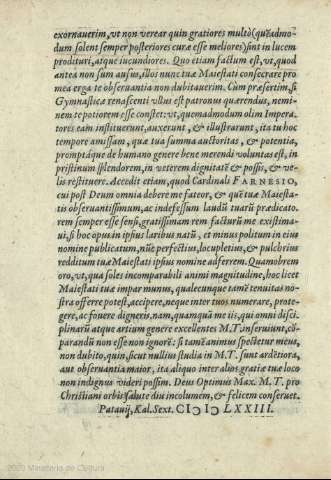 exornauerim, vt non verear quin gratiores multò (quēadmo-
dum solent semper posteriores curæ esse meliores) sint in lucem
prodituri, atque iucundiores. Quo etiam factum est, vt, quod
antea non sum ausus, illos nunc tuæ Maiestati consecrare pro
mea erga te obseruantia non dubitauerim. Cum præsertim, si
Gymnasticæ renascenti vllus est patronus quærendus, nemi-
nem te potiorem esse constet: vt, quemadmodum olim Impera-
tores eam instituerunt, auxerunt, & illustrarunt, ita tu hoc
tempore amissam, quæ tua summa auctoritas, & potentia,
promptáque de humano genere bene merendi voluntas est, in
pristinum splendorem, in veterem dignitatē & possis, & ve-
lis restituere. Accedit etiam, quod Cardinali FARNESIO,
cui post Deum omnia debere me fateor, & quē tuæ Maiesta-
tis obseruantissimum, ac indefessum laudū tuarū prædicato-
rem semper esse sensi, gratissimam rem facturū me existima-
ui, si hoc opus in ipsius laribus natū, et minus politum in eius
nomine publicatum, nūc perfectius, locupletius, & pulchrius
redditum tuæ Maiestati ipsius nomine adferrem. Quamobrem
oro, vt, qua soles incomparabili animi magnitudine, hoc licet
Maiestati tuæ impar munus, qualecunque tamē tenuitas no-
stra offerre potest, accipere, neque inter tuos numerare, prote-
gere, ac fouere digneris, nam, quamquā me iis, qui omni disci-
plinarū atque artium genere excellentes M.T. inseruiunt, cō-
parandū non esse non ignorē: si tamē animus spectetur meus,
non dubito, quin, sicut nullius studia in M.T. sunt ardētiora,
aut obseruantia maior, ita aliquo inter alios gratiæ tuæ loco
non indignus videri possim. Deus Optimus Max. M.T. pro
Christiani orbis salute diu incolumem, & felicem conseruet.
Patauij, Kal. Sext. CIↃ IↃ LXXIII.
2009 Ministerio de Cultura